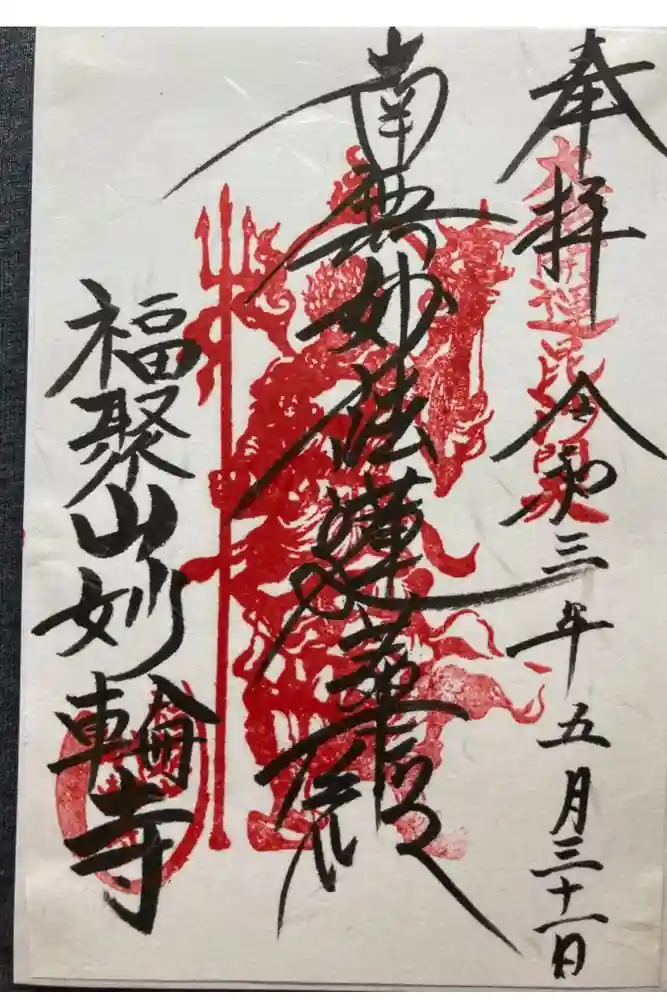 奉拝 令和三年五月三十一日
大開運毘沙門天
南無妙法蓮華経
福聚山妙輪寺